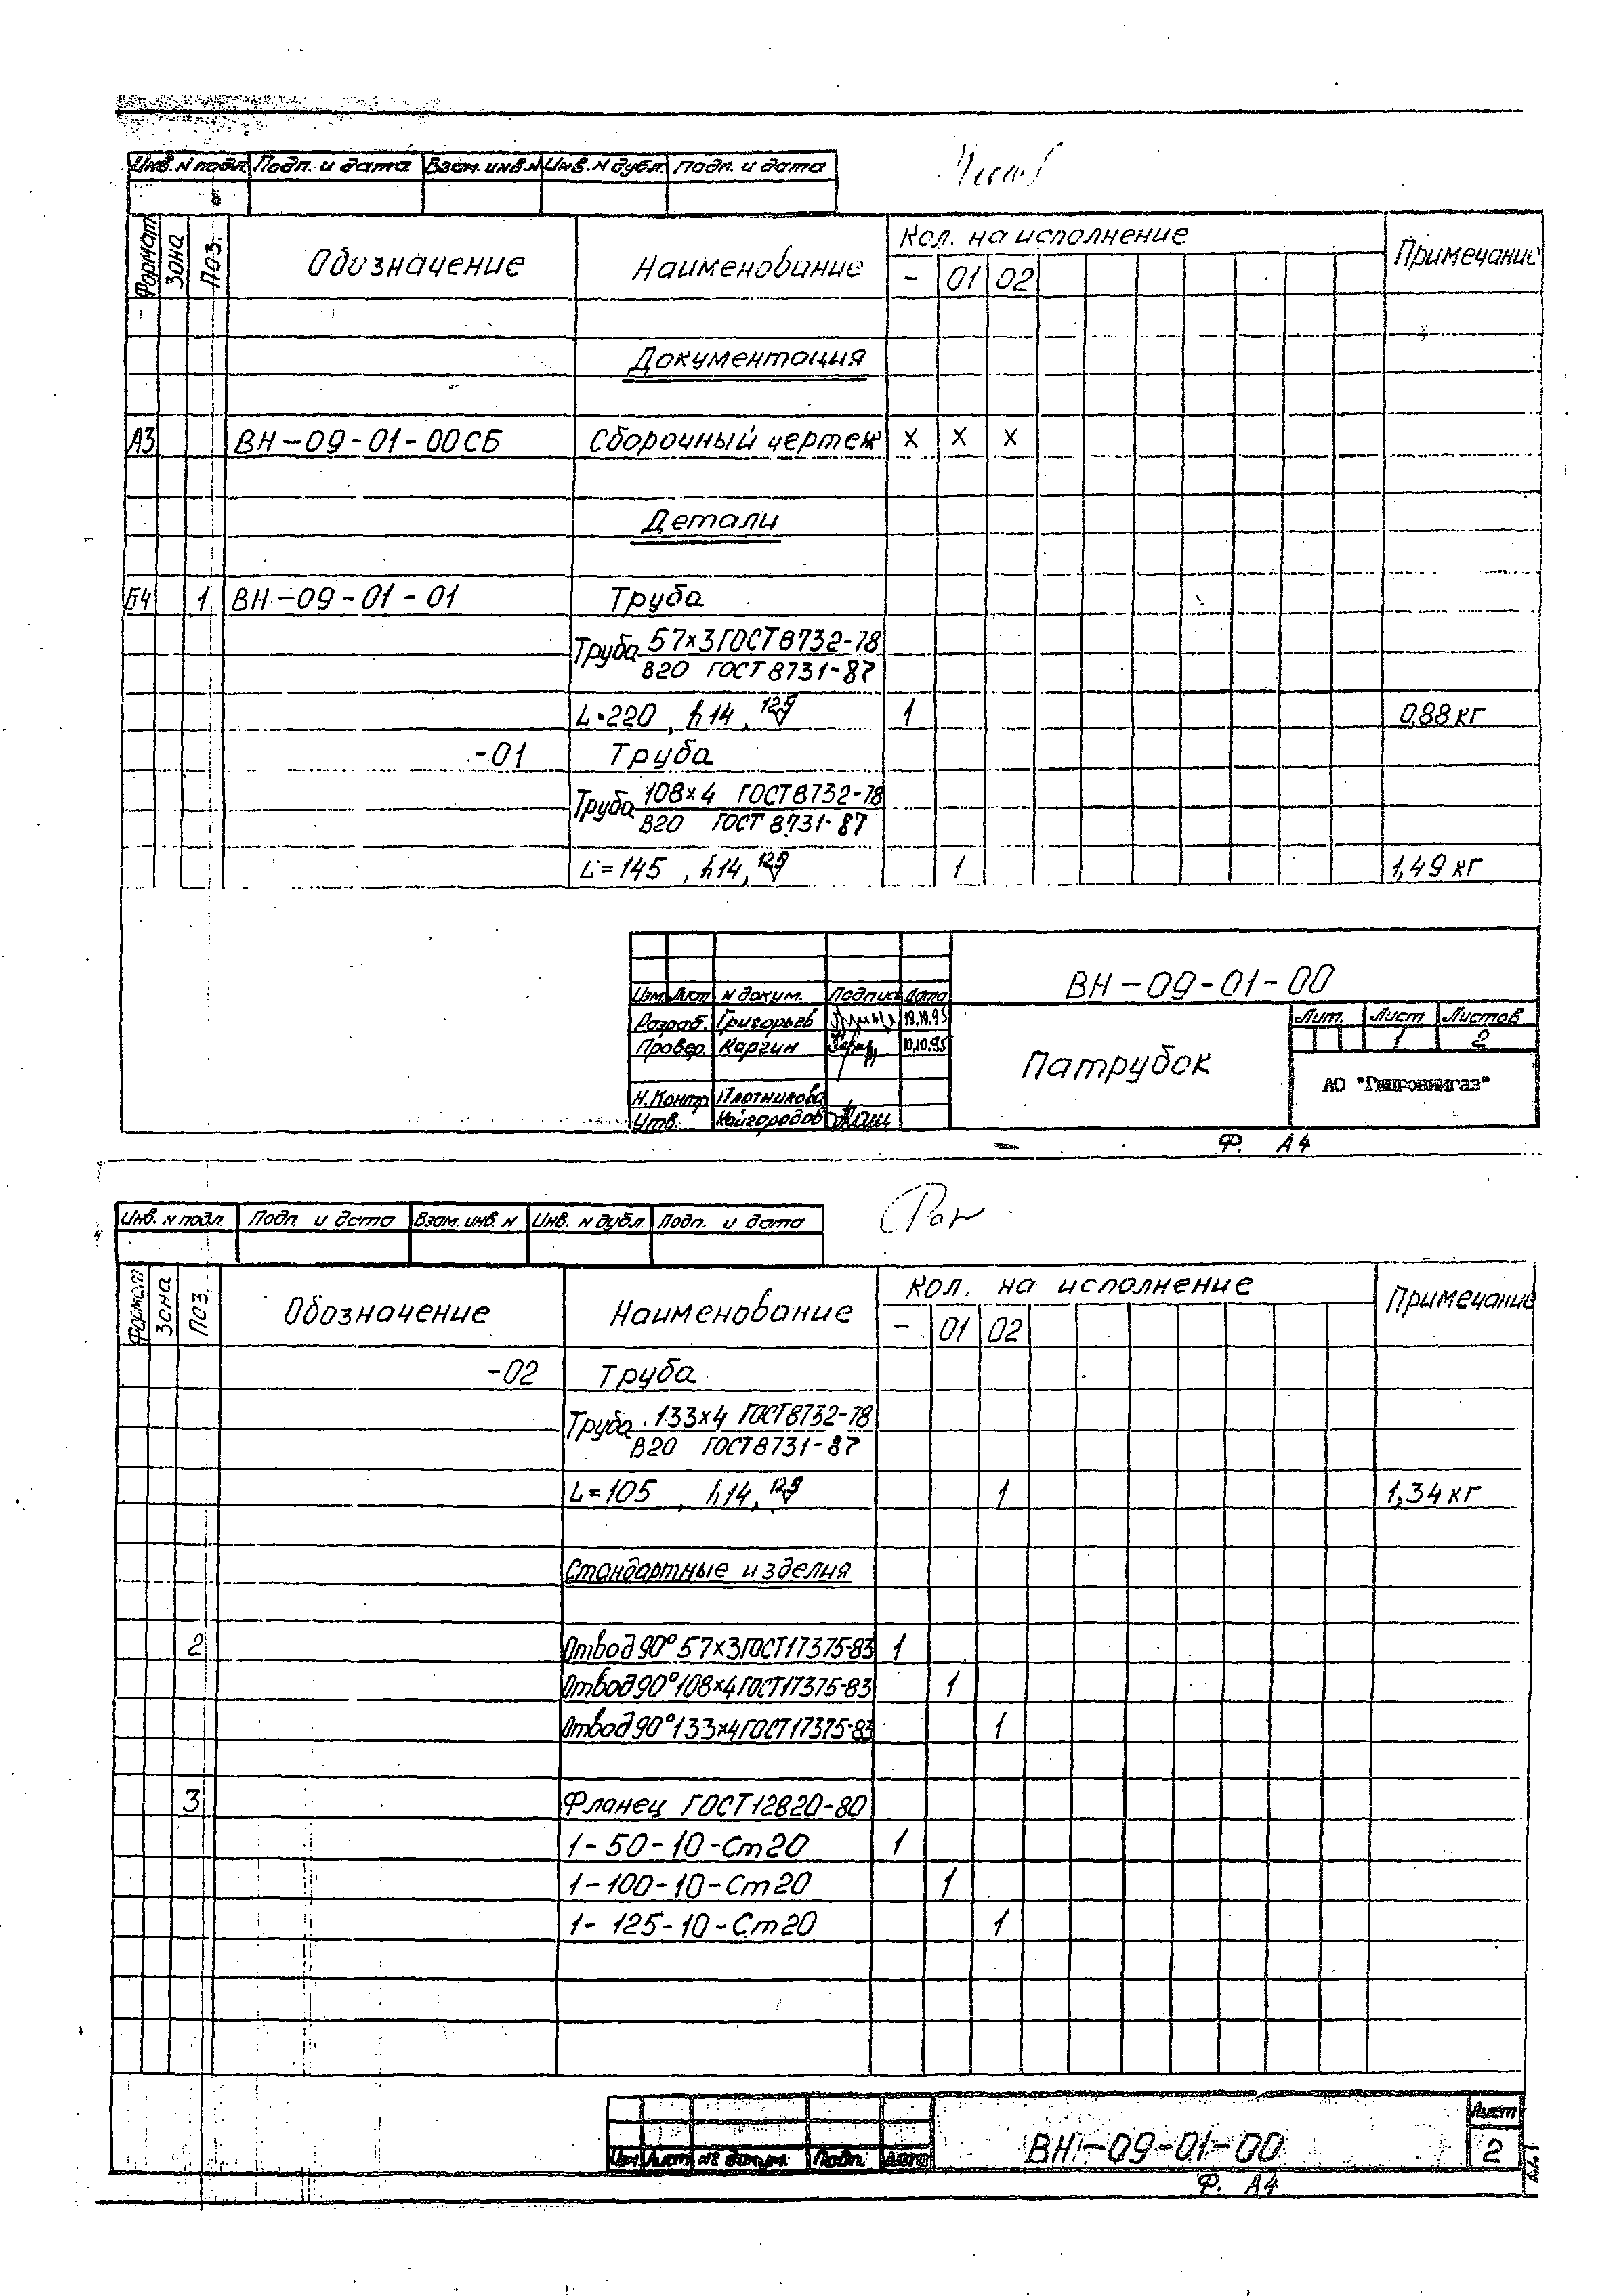 Инв. N подл. Подп. и дата Взам. инв. N Инв. N дубл. Подп. и дата
Формат Зона Поз. Обозначение Наименование Кол. на исполнение Примечание
- 01 02
Документация
А3 ВН-09-01-00СБ Сборочный чертеж X X X
Детали
Б4 1 ВН-09-01-01 Труба
Труба 57×3 ГОСТ 8732-78
В20 ГОСТ 8731-87
L=220, h14, 12,5 1 0,88 кг
-01 Труба
Труба 108×4 ГОСТ 8732-78
В20 ГОСТ 8731-87
L=145, h14, 12,5 1 1,49 кг
ВН-09-01-00
Изм. Лист N докум. Подпись Дата
Разраб. Григорьев 19.10.95
Провер. Каргин 10.10.95
Н.Контр. Плотникова
Утв. Кайгородов
Патрубок
Лит. Лист Листов
1 2
АО "Гипрониигаз"
Ф. А4
Инв. N подл. Подп. и дата Взам. инв. N Инв. N дубл. Подп. и дата
Формат Зона Поз. Обозначение Наименование Кол. на исполнение Примечание
- 01 02
-02 Труба
Труба 133×4 ГОСТ 8732-78
В20 ГОСТ 8731-87
L=105, h14, 12,5 1 1,34 кг
Стандартные изделия
2 Отвод 90° 57×3 ГОСТ 17375-83 1
Отвод 90° 108×4 ГОСТ 17375-83 1
Отвод 90° 133×4 ГОСТ 17375-83 1
3 Фланец ГОСТ 12820-80
1-50-10-Ст20 1
1-100-10-Ст20 1
1-125-10-Ст20 1
Изм. Лист № докум. Подп. Дата
ВН-09-01-00
Лист
2
Ф. А4